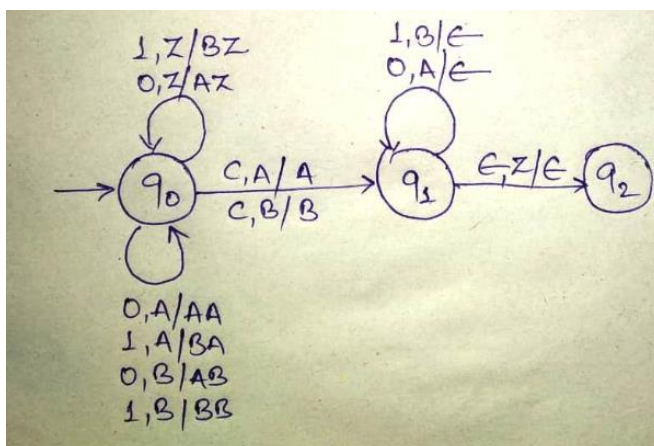 1,Z/BZ
0,Z/AZ
1,B/ϵ
0,A/ϵ
q0
C,A/A
C,B/B
q1
ϵ,Z/ϵ
q2
0,A/AA
1,A/BA
0,B/AB
1,B/BB